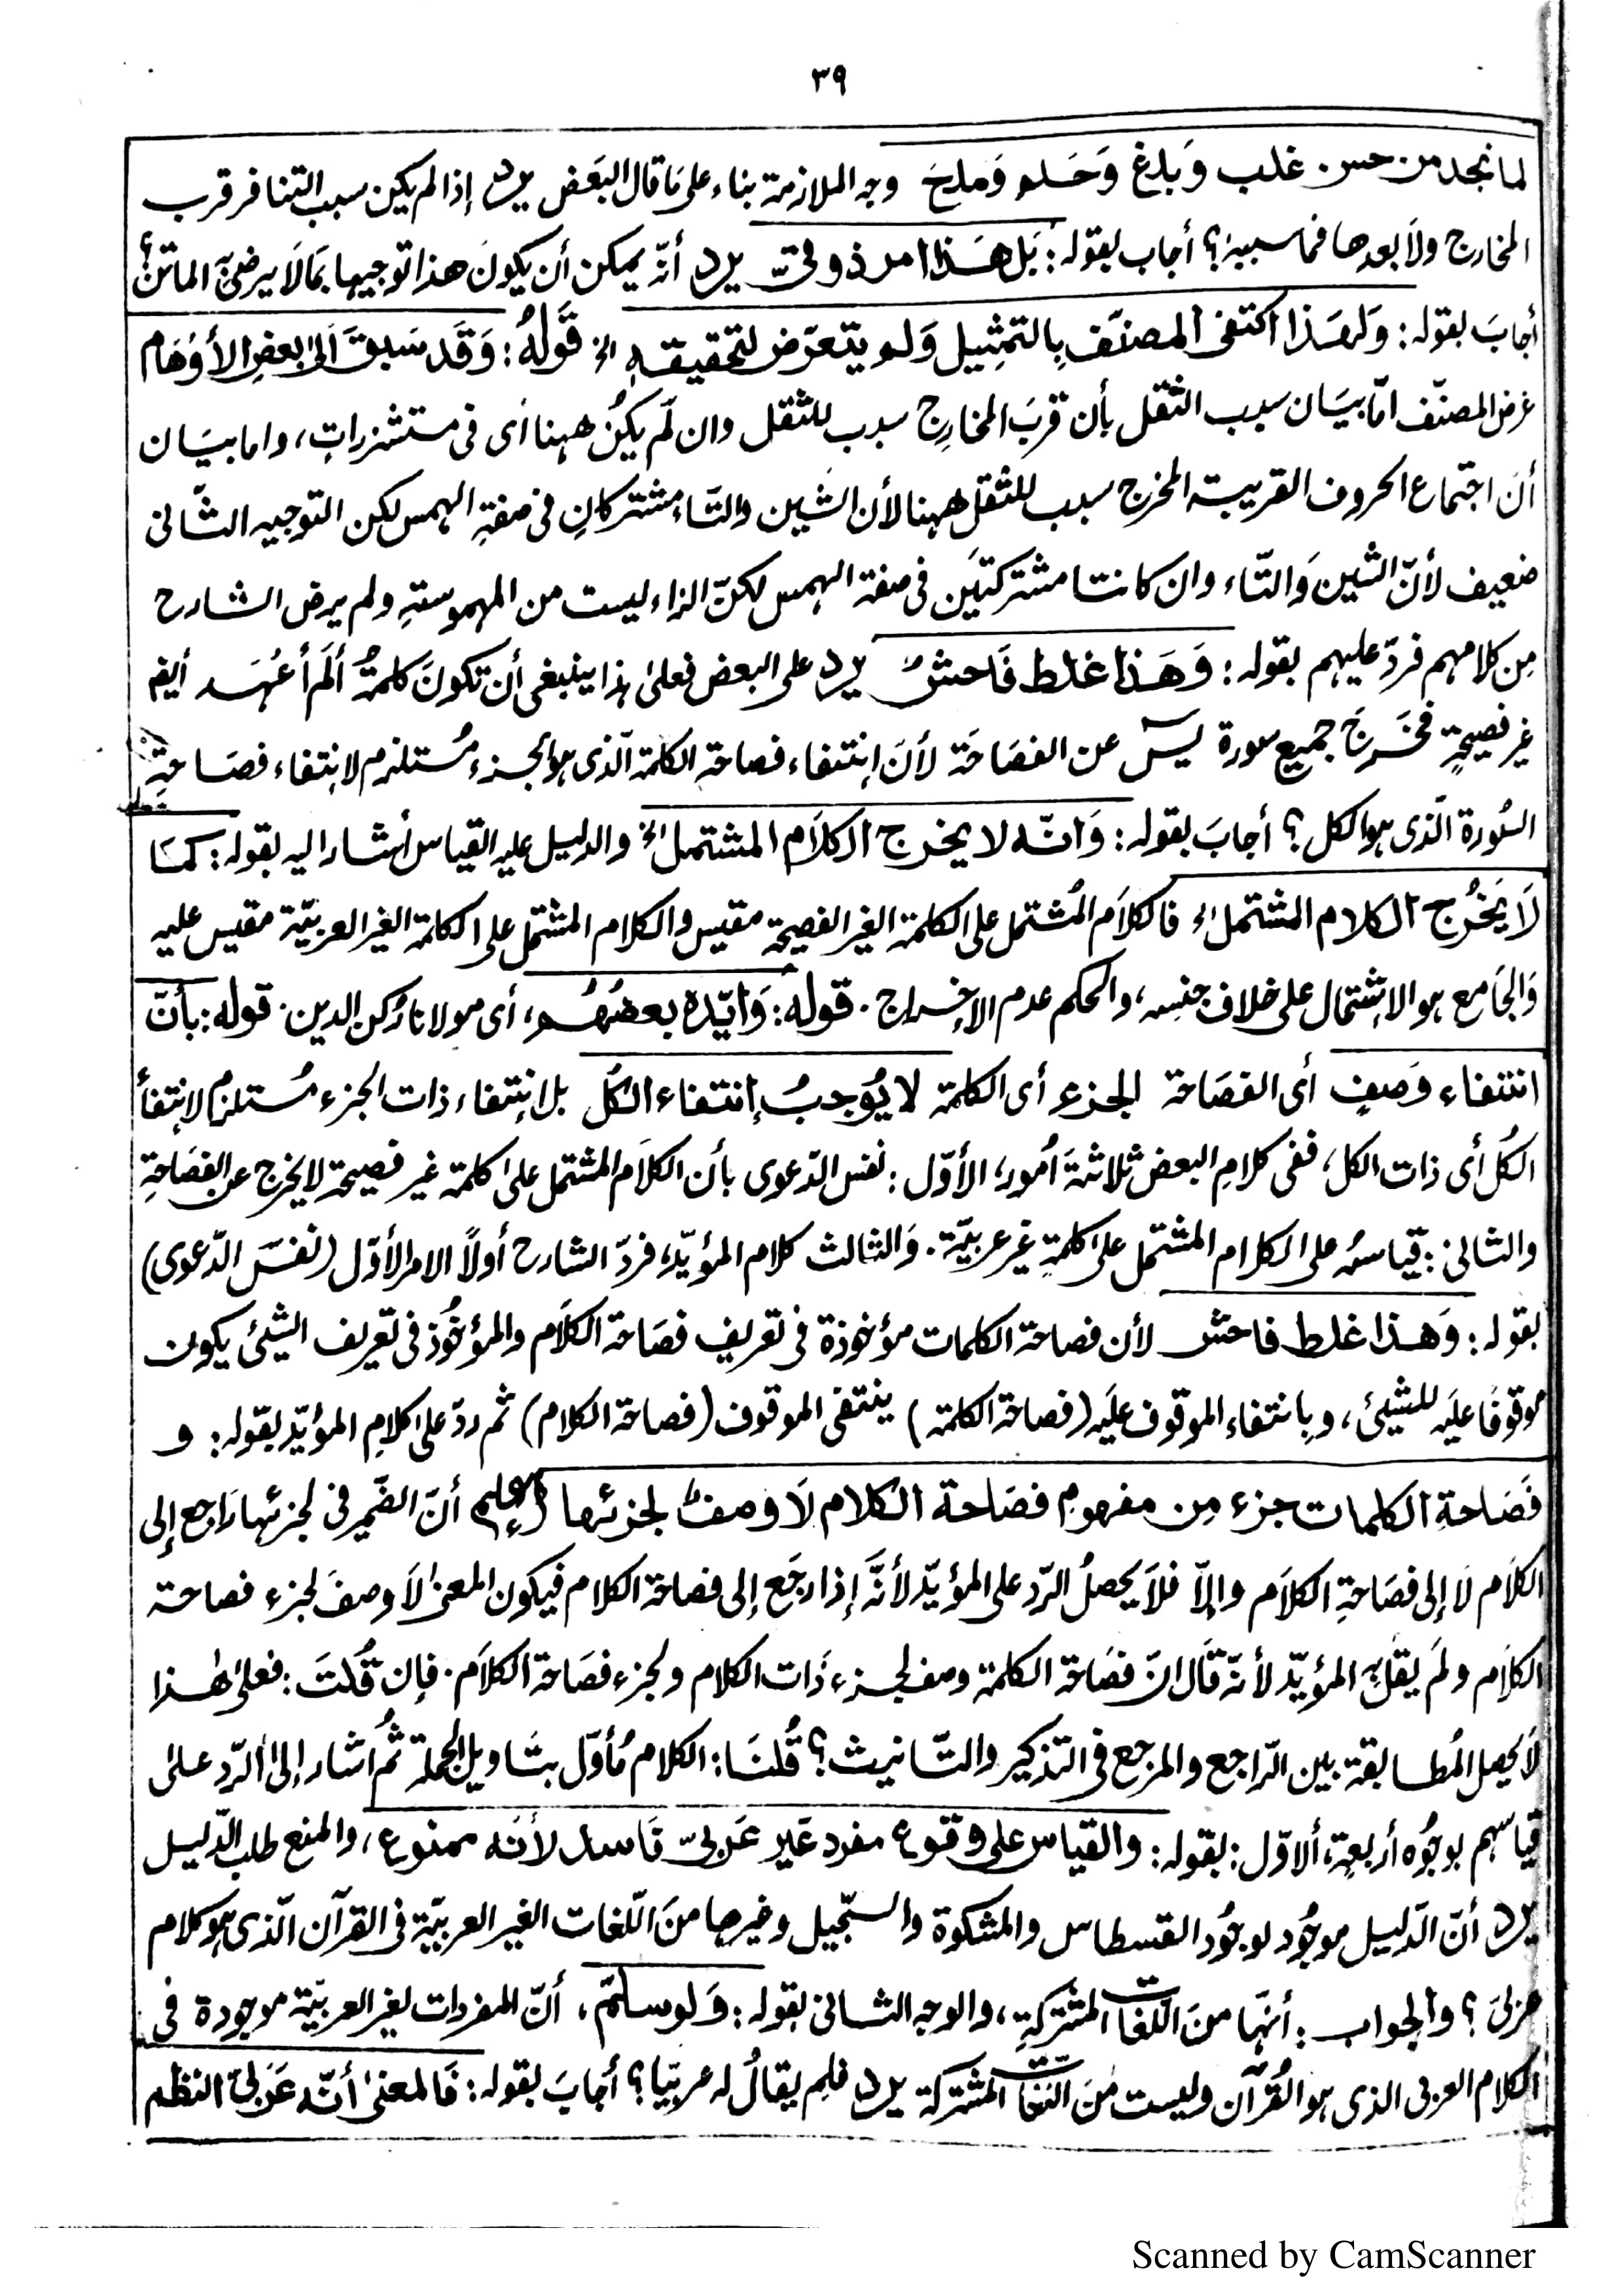 ٣٩
لما نجد من حسن غلب وَبلغ وَحَلم وَملحَ وجه الملازمة بناء على مَا قال البَعض يرد إذا لم يكن سبب التنافر قرب
المخارج ولَا بعدها فما سببهٗ؟ أجاب بقوله: بَل هَذا امر ذوقيّ يرد أنّه يمكن أن يكونَ هذا توجيها بمَا لَا يرضىٰ به الماتن؟
أجابَ بقوله: وَلهَذا اكتفى المصنّف بِالتمثِيل وَلم يتعرّض لتحقيقه الخ قَولهُ: وَقَد سَبقَ اَلىٰ بعضِ الأوْهَام
غرض المصنّف امّا بيَان سبب الثقل بأن قربَ المخارِج سبب للثقل وان لَم يكنُ ههنا أى فى مستشزراتٍ، واما بيَان
أن اجتماع الحروف القريبة المخرج سبب للثقل ههنا لأن الشين والتَاء مشتركانِ فى صفةِ الهمس لكن التوجيه الثّانى
ضعيف لأنّ الشين وَالتّاء وان كانتا مشتركتَين فى صفة الهمس لكنّ الزاء ليست من المهموسةِ ولم يرض الشارح
مِن كلامهم فردّ عليهم بقوله: وَهَذا غلط فَاحشٌ يرد على البعض فعلىٰ هذا ينبغى أن تكونَ كلمةُ ألَم أعْهَد أيضا
غير فصيحةٍ فخَرجَ جميع سورة يٓسٓ عن الفصَاحَة لأنَ إنتفاء فصاحة الكلمة الّذى هو الجزء مُستلزم لانتفاء فصَاحةِ
السُورة الّذى هو الكل؟ أجابَ بقوله: وَانّه لا يخرج الكلَام المشتمل الخ والدليل عليه القياس أشار اليه بقوله: كمَا
لَا يَخرُج الكلام المشتمل الخ فالكلاَم المُشتمل على الكلمة الغير الفصيحة مقيس والكلام المشتمل على الكلمة الغير العربيّة مقيس عليه
وَالجَامع هو الاشتمال على خلاف جنسه، والحكم عدم الاخراج. قوله: وَايّده بعضُهُم، أى مولانا رُكن الدين. قوله: بأنّ
انتفاء وَصفِ أى الفصَاحة الجزء أى الكلمة لا يُوجبُ إنتفاء الكُل بل انتِفاء ذات الجزء مُستلزم لانتفأ
الكُل أى ذات الكل، ففى كلامِ البعض ثلاثةَ اُمور، الأوّل: نفس الدّعوى بأن الكلَام المشتمل علىٰ كلمة غير فصيحة لا يخرج عن الفصَاحةِ
والثانى: قيَاسهُ على الكلام المشتمل على كلمةٍ غير عربيّة. وَالثالث كلام المؤيّد، فردّ الشارح أولاً الامر الأوّل (نفسَ الدّعوى)
بقوله: وَهذا غلط فاحش لأن فصاحة الكلمات مؤخوذة فى تعريف فصَاحة الكلَام والمؤخُوذ فى تعريف الشيئ يكون
موقوفَا عليَه للشيئ، وبانتفاء الموقوف عليَه (فصاحة الكلمة) ينتفى الموقوف (فصاحة الكلام) ثم ردّ على كلامِ المؤيّد بقوله: و
فصَاحةِ الكلمات جزء مِن مفهوم فصَاحة الكلام لَا وصفٌ لجزئها إعلم أنّ الضّمير فى لجزئها رَاجع إلى
الكلَام لَا إلى فصَاحةِ الكلَام وإلاّ فلاَ يَحصلُ الرّد على المؤيّد لأنَّه إذا رجَع إلى فصاحة الكلام فيكون المعنىٰ لاَ وصفَ لجزء فصاحة
الكلَام ولمَ يقل به المؤيّد لأنّه قَال انّ فصَاحة الكلمة وصف لجزء ذَات الكلام ولجزء فصَاحة الكلاَم. فإن قُلتَ: فعلىٰ هٰذا
لَا يحصل المُطابقة بين الرّاجع والمرجع فى التذكير والتّانيث؟ قُلنَا: الكلام مُأوّل بتَاويل الجملة ثُم اَشار إلىٰ الرّد علىٰ
قياسهم بوجُوه أربعةٍ، ألاوّل: بقوله: والقياس على وقوع مفرد غَير عَربىّ فَاسد لأنّه ممنوع، والمنع طلب الدّليل
يرد أنّ الدّليل موجُود لوجُود القسطاس والمشكوة والسجّيل وغيرها منَ اللّغات الغير العربيّة فى القرآن الّذى هو كلام
عربىَ؟ والجواب: أنهّا منَ اللّغات المشتركةِ، والوجه الثانى بقوله: وَلو سلمّ، أنّ المفردات لغير العربيّة موجودة فى
الكلام العربى الذى هو القُرآن وليست مُنَ اللّغات المشتركة يرد فلِم يقالُ له عربيّا؟ أجابَ بقوله: فَالمعنىٰ أنّه عَرَبىّ النظم
Scanned by CamScanner